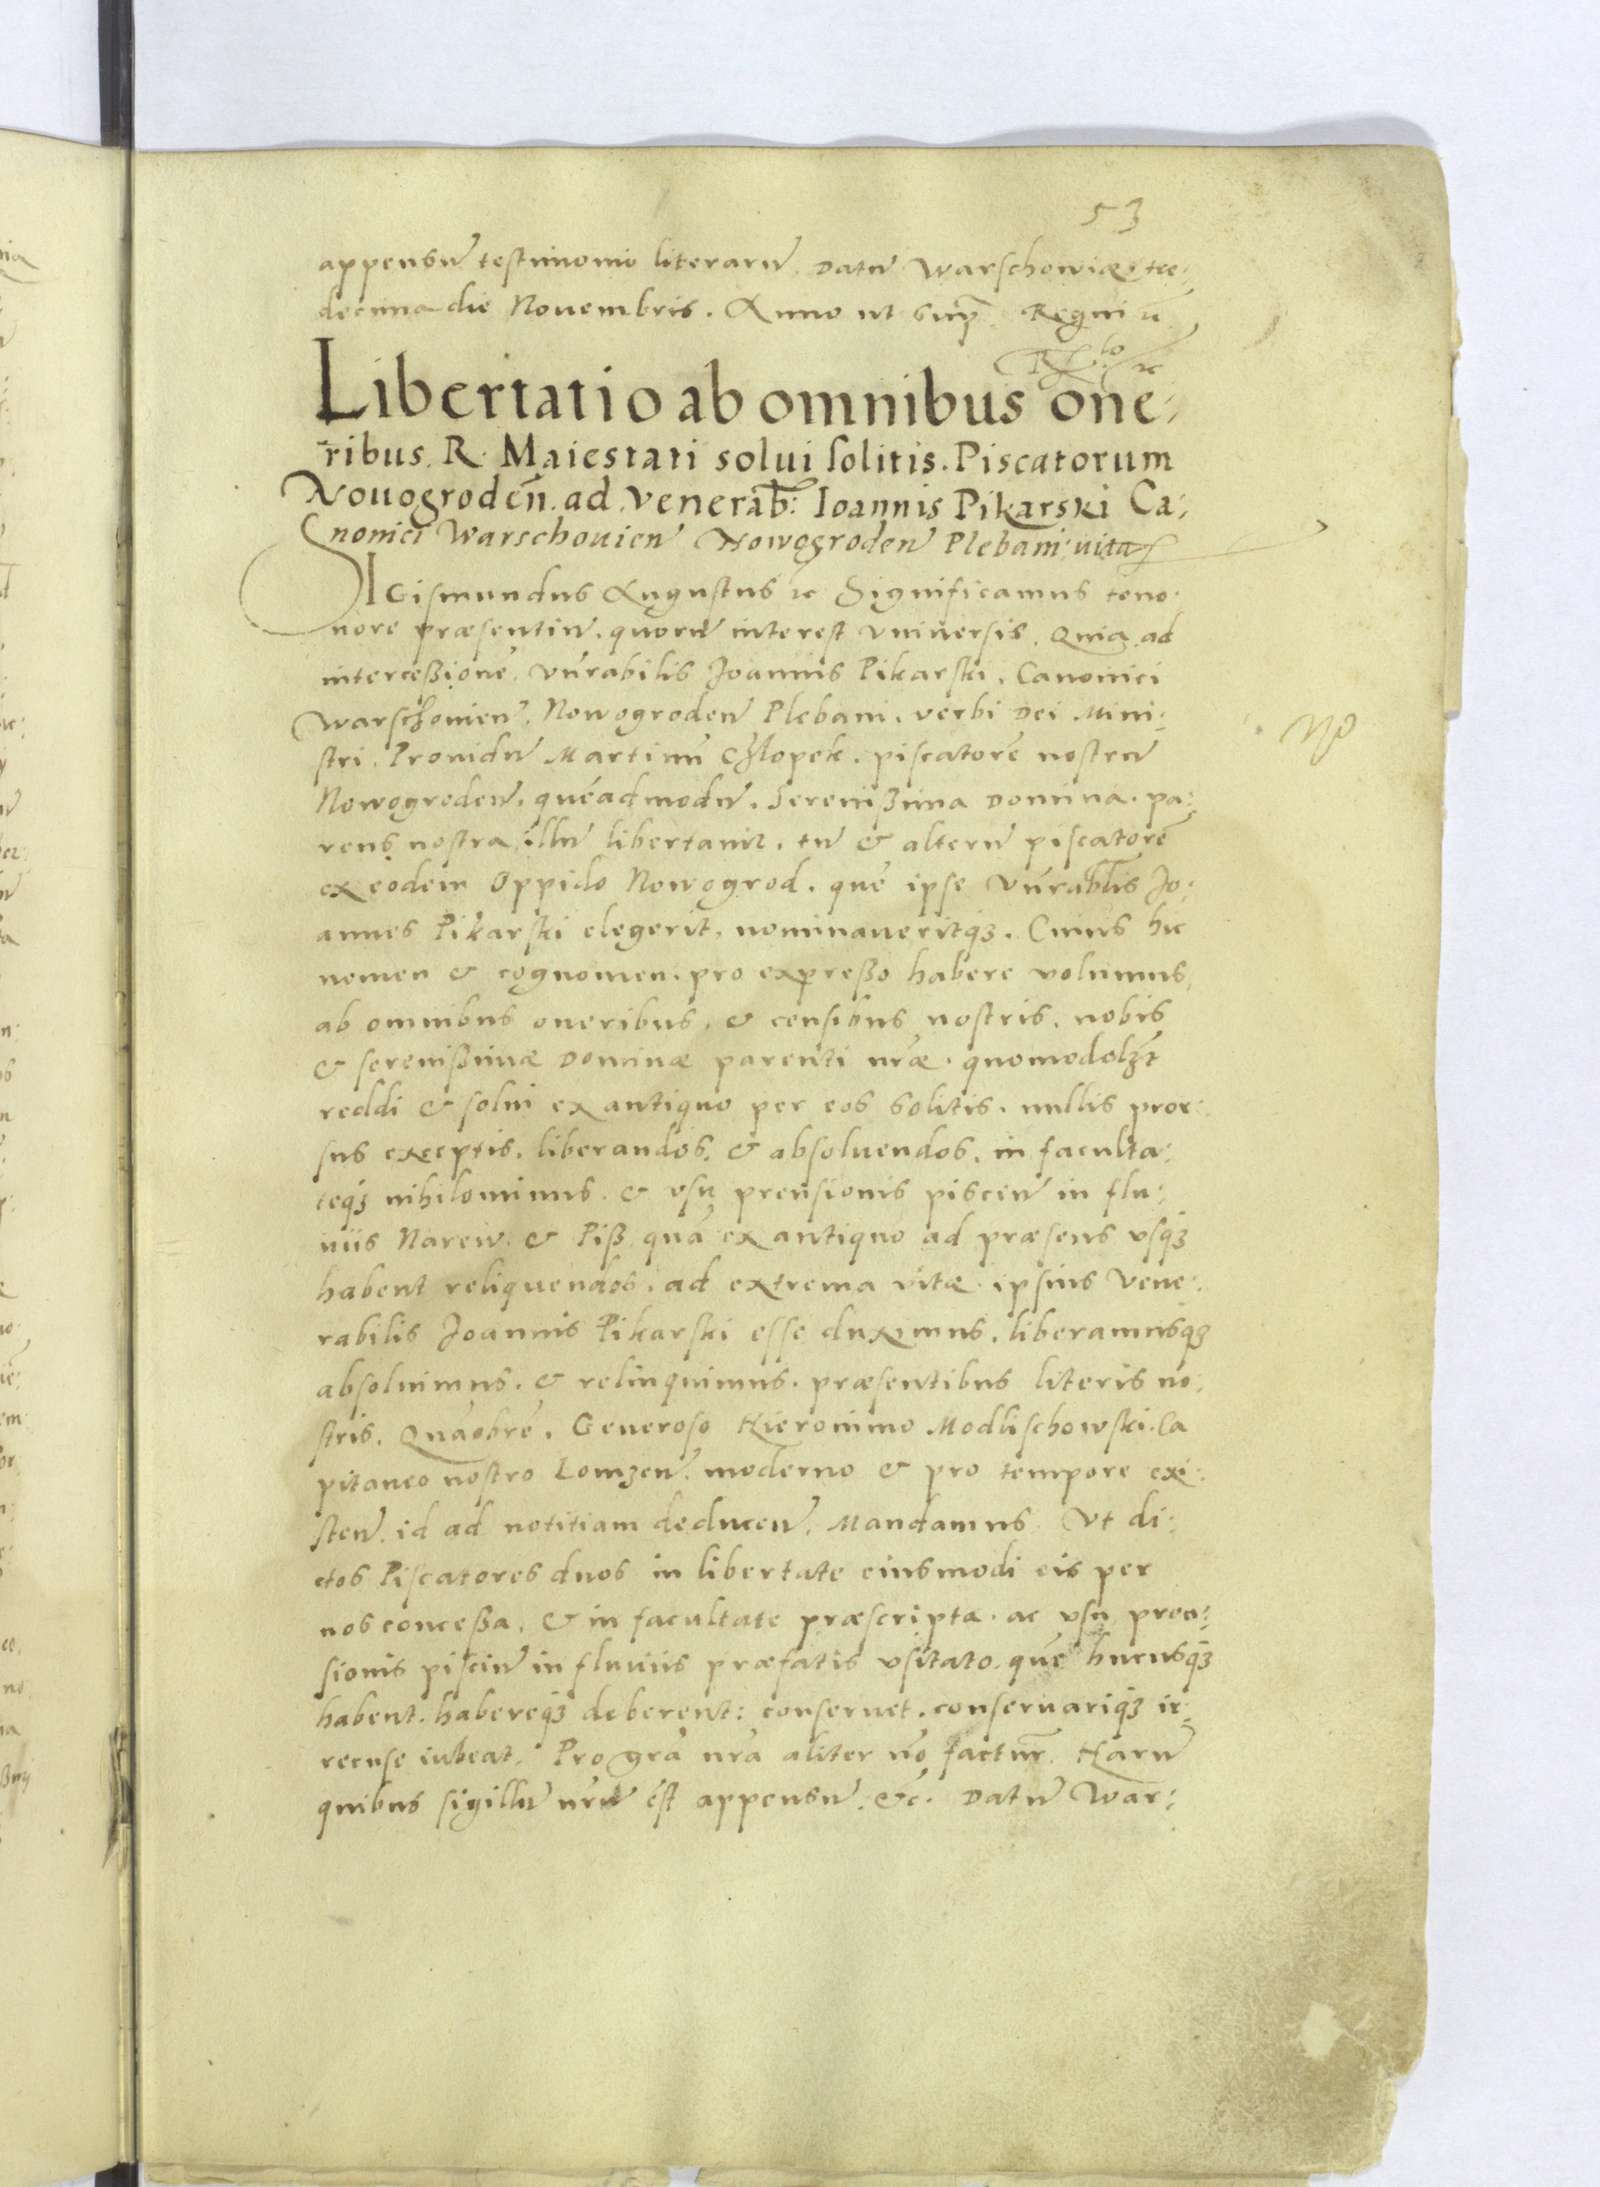 53
appensũ testimonio literarũ. Datũ Warschoviæ tre:
decima die Novembris. Anno ut supr̃ Regni ũ
Libertatio ab omnibus one:
ribus. R. Maiestati solui solitis. Piscatorum
Nouogrodeñ. ad venerab: Ioannis Pikarski Ca:
nonici Warschouieñ Nowogrodeñ Plebani: uitã
SIGismundus Augustus ꝛc Significamus teno:
nore præsentiũ. quorũ interest vniuersis. Quia ad
interceßionẽ vñrabilis Joannis Pikarski. Canonici
Warschouieñ. Nowogrodeñ Plebani. verbi Dei Mini:
stri. Prouidũ Martinũ Chlopek. piscatorẽ nostrũ
Nowogrodeñ. quẽadmodũ. Serenißima Domina. pa:
rens nostra illũ libertauit. tũ & alterũ piscatorẽ
ex eodem Oppido Nowogrod. quẽ ipse vñrablis Jo:
annes Pikarski elegerit, nominaueritq3. Cuius hic
nomen & cognomen. pro expreßo habere volumus,
ab omnibus oneribus. & censibus nostris. nobis
& serenißimæ Dominæ parenti nr̃æ. quomodolzt
reddi & solui ex antiquo per eos solitis. nullis pror:
sus exceptis. liberandos. & absoluendos. in faculta:
teq3 nihilominus. & usu prensionis pisciũ in flu:
uiis Narew. & Piß quã ex antiquo ad præsens usq3
habent reliquendos. ad extrema vitæ ipsius Vene:
rabilis Joannis Pikarski esse duximus. liberamusq3
absoluimus. & relinquimus. præsentibus literis no:
stris. Quãobrẽ. Generoso Hieronimo Modlischowski. Ca
pitaneo nostro Lomzeñ. moderno & pro tempore exi:
steñ. id ad notitiam deduceñ. Mandamus. Vt di:
ctos Piscatores duos in libertate eiusmodi eis per
nos conceßa. & in facultate præscripta. ac usu pren:
sionis pisciũ in fluuiis præfatis usitato. quẽ hucusq3
habent. habereq3 deberent: conseruet. conseruariq3 ir:
recuse iubeat. Pro grã nr̃a aliter nõ factur̃. Harũ
quibus sigillũ nr̃ũ est appensũ. &c. Datũ War: